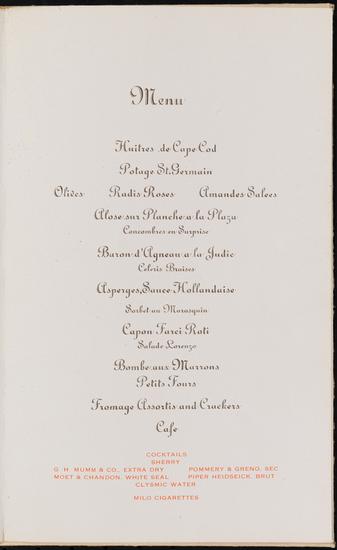 Menu
Huitres de Cape Cod
Potage St. Germain
Olives Radis Roses Amandes Salees
Alose sur Planche a la Plaza
Concombres en Surprise
Baron d'Agneau a la Judic
Celeris Braises
Asperges, Sauce Hollandaise
Sorbet au Marasquin
Capon Farci Roti
Salade Lorenzo
Bombe aux Marrons
Petits Fours
Fromage Assortis and Crackers
Cafe
COCKTAILS
SHERRY
G. H. MUMM & CO., EXTRA DRY POMMERY & GRENO, SEC
MOET & CHANDON, WHITE SEAL PIPER HEIDSEICK, BRUT
CLYSMIC WATER
MILO CIGARETTES